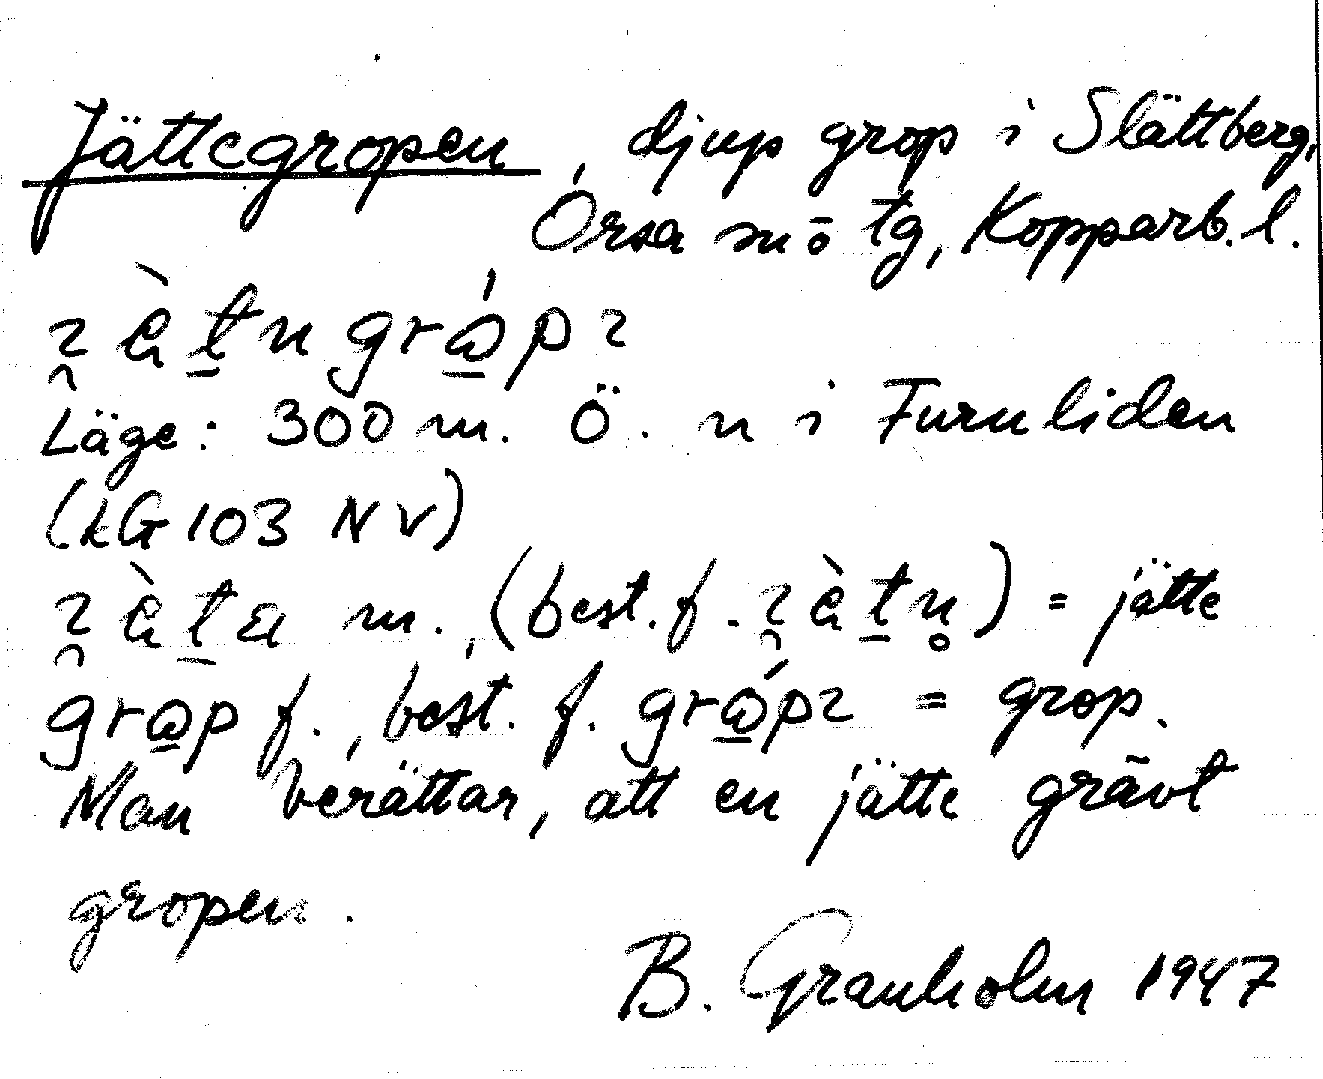 Jättegropen, djup grop i Slättberg,
Orsa sn o tg, Kopparb. l.
Läge: 300 m. Ö. n i Furuliden
(LG 103 NV)
m., (best. f. ) = jätte
f., best. f. = grop.
Man berättar, att en jätte grävt
gropen.
B. Granholm 1947